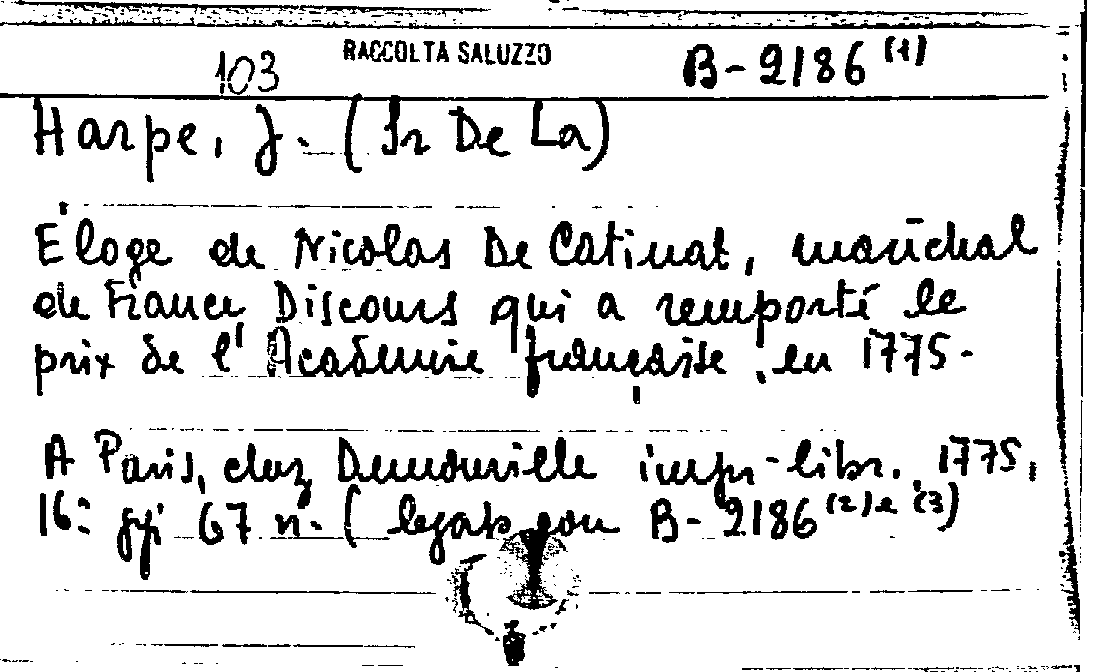 103 RACCOLTA SALUZZO B-2186 (1)
Harpe, J. (Sr De La)
Éloge de Nicolas De Catinat, maréchal
de France Discours qui a remporté le
prix de l'Académie française, en 1775.
A Paris, chez Demonville impr-libr. 1775,
16: 67 n. (legato con B-2186 (2) e (3)